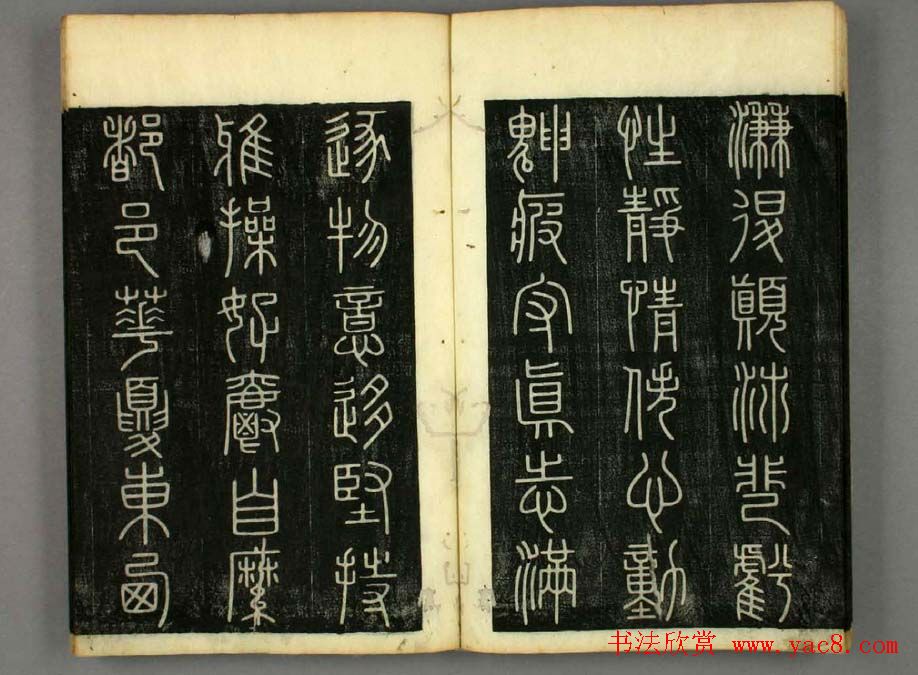 濂退顛沛匪虧
性靜情佚心動
䰠疲守眞志滿
逐物意迻堅持
雅操好爵自縻
都邑華夏東西
书法欣赏 www.yac8.com